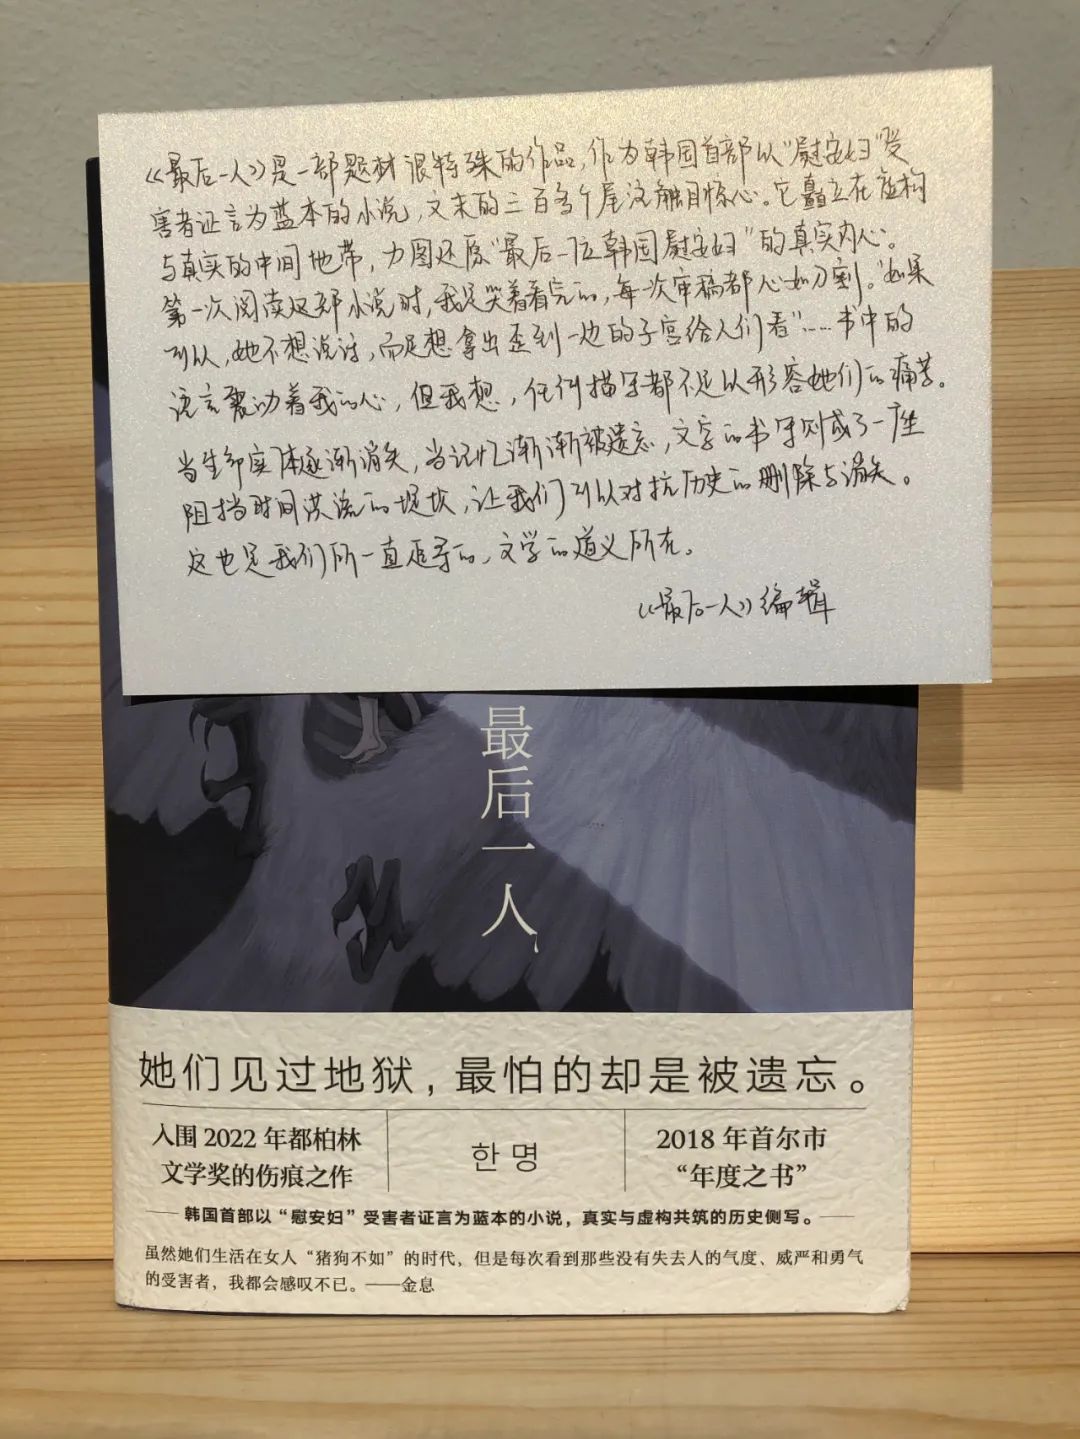 《最后一人》是一部题材很特殊的作品，作为韩国首部以“慰安妇”受
害者证言为蓝本的小说，文末的三百多个尾注触目惊心。它矗立在虚构
与真实的中间地带，力图还原“最后一位韩国慰安妇”的真实内心。
第一次阅读这部小说时，我是哭着看完的，每次审稿都心如刀割。“如果
可以，她不想说话，而是想拿出歪到一边的子宫给人们看”……书中的
语言震动着我的心，但我想，任何描写都不足以形容她们的痛苦。
当生命实体逐渐消失，当记忆渐渐被遗忘，文字的书写则成了一座
阻挡时间洪流的堤坎，让我们可以对抗历史的删除与消失。
这也是我们所一直追寻的，文学的道义所在。
《最后一人》编辑
最后一人
她们见过地狱，最怕的却是被遗忘。
入围 2022 年都柏林
文学奖的伤痕之作
한 명
2018 年首尔市
“年度之书”
韩国首部以“慰安妇”受害者证言为蓝本的小说，真实与虚构共筑的历史侧写。
虽然她们生活在女人“猪狗不如”的时代，但是每次看到那些没有失去人的气度、威严和勇气
的受害者，我都会感叹不已。——金息